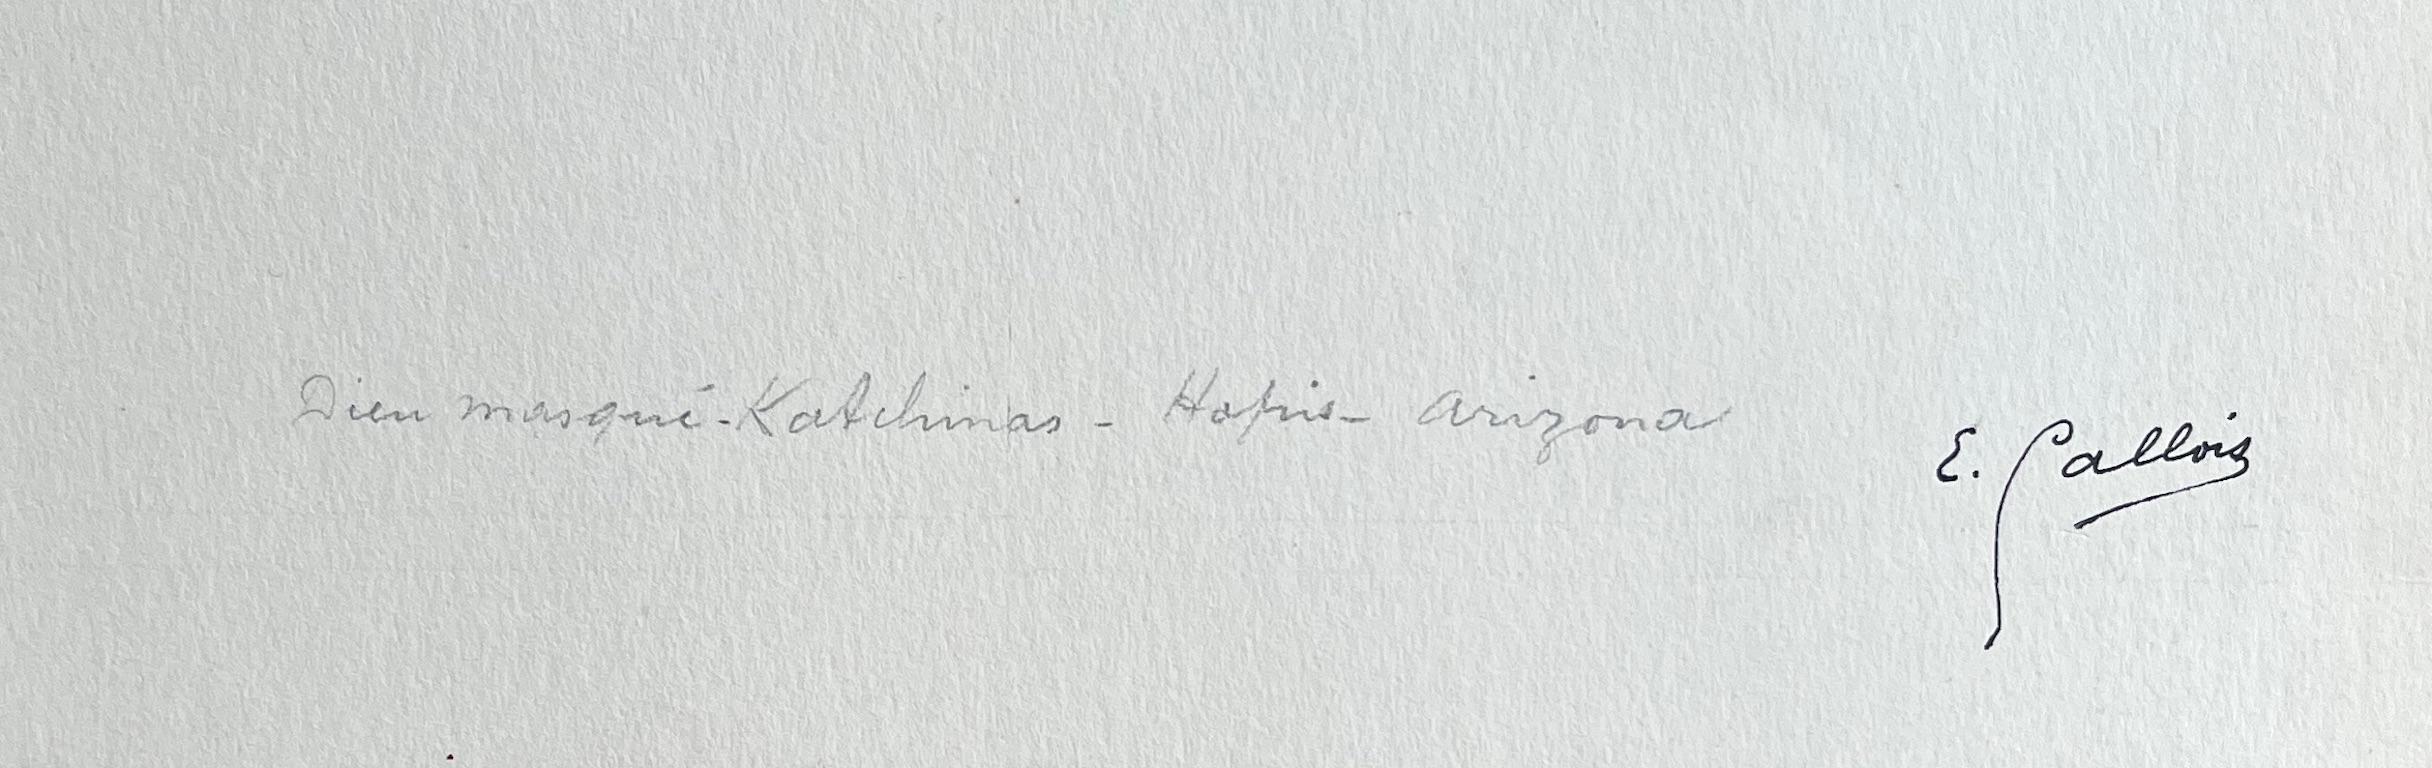 Dieu masqué - Katchinas - Hopis - Arizona
E. Gallois